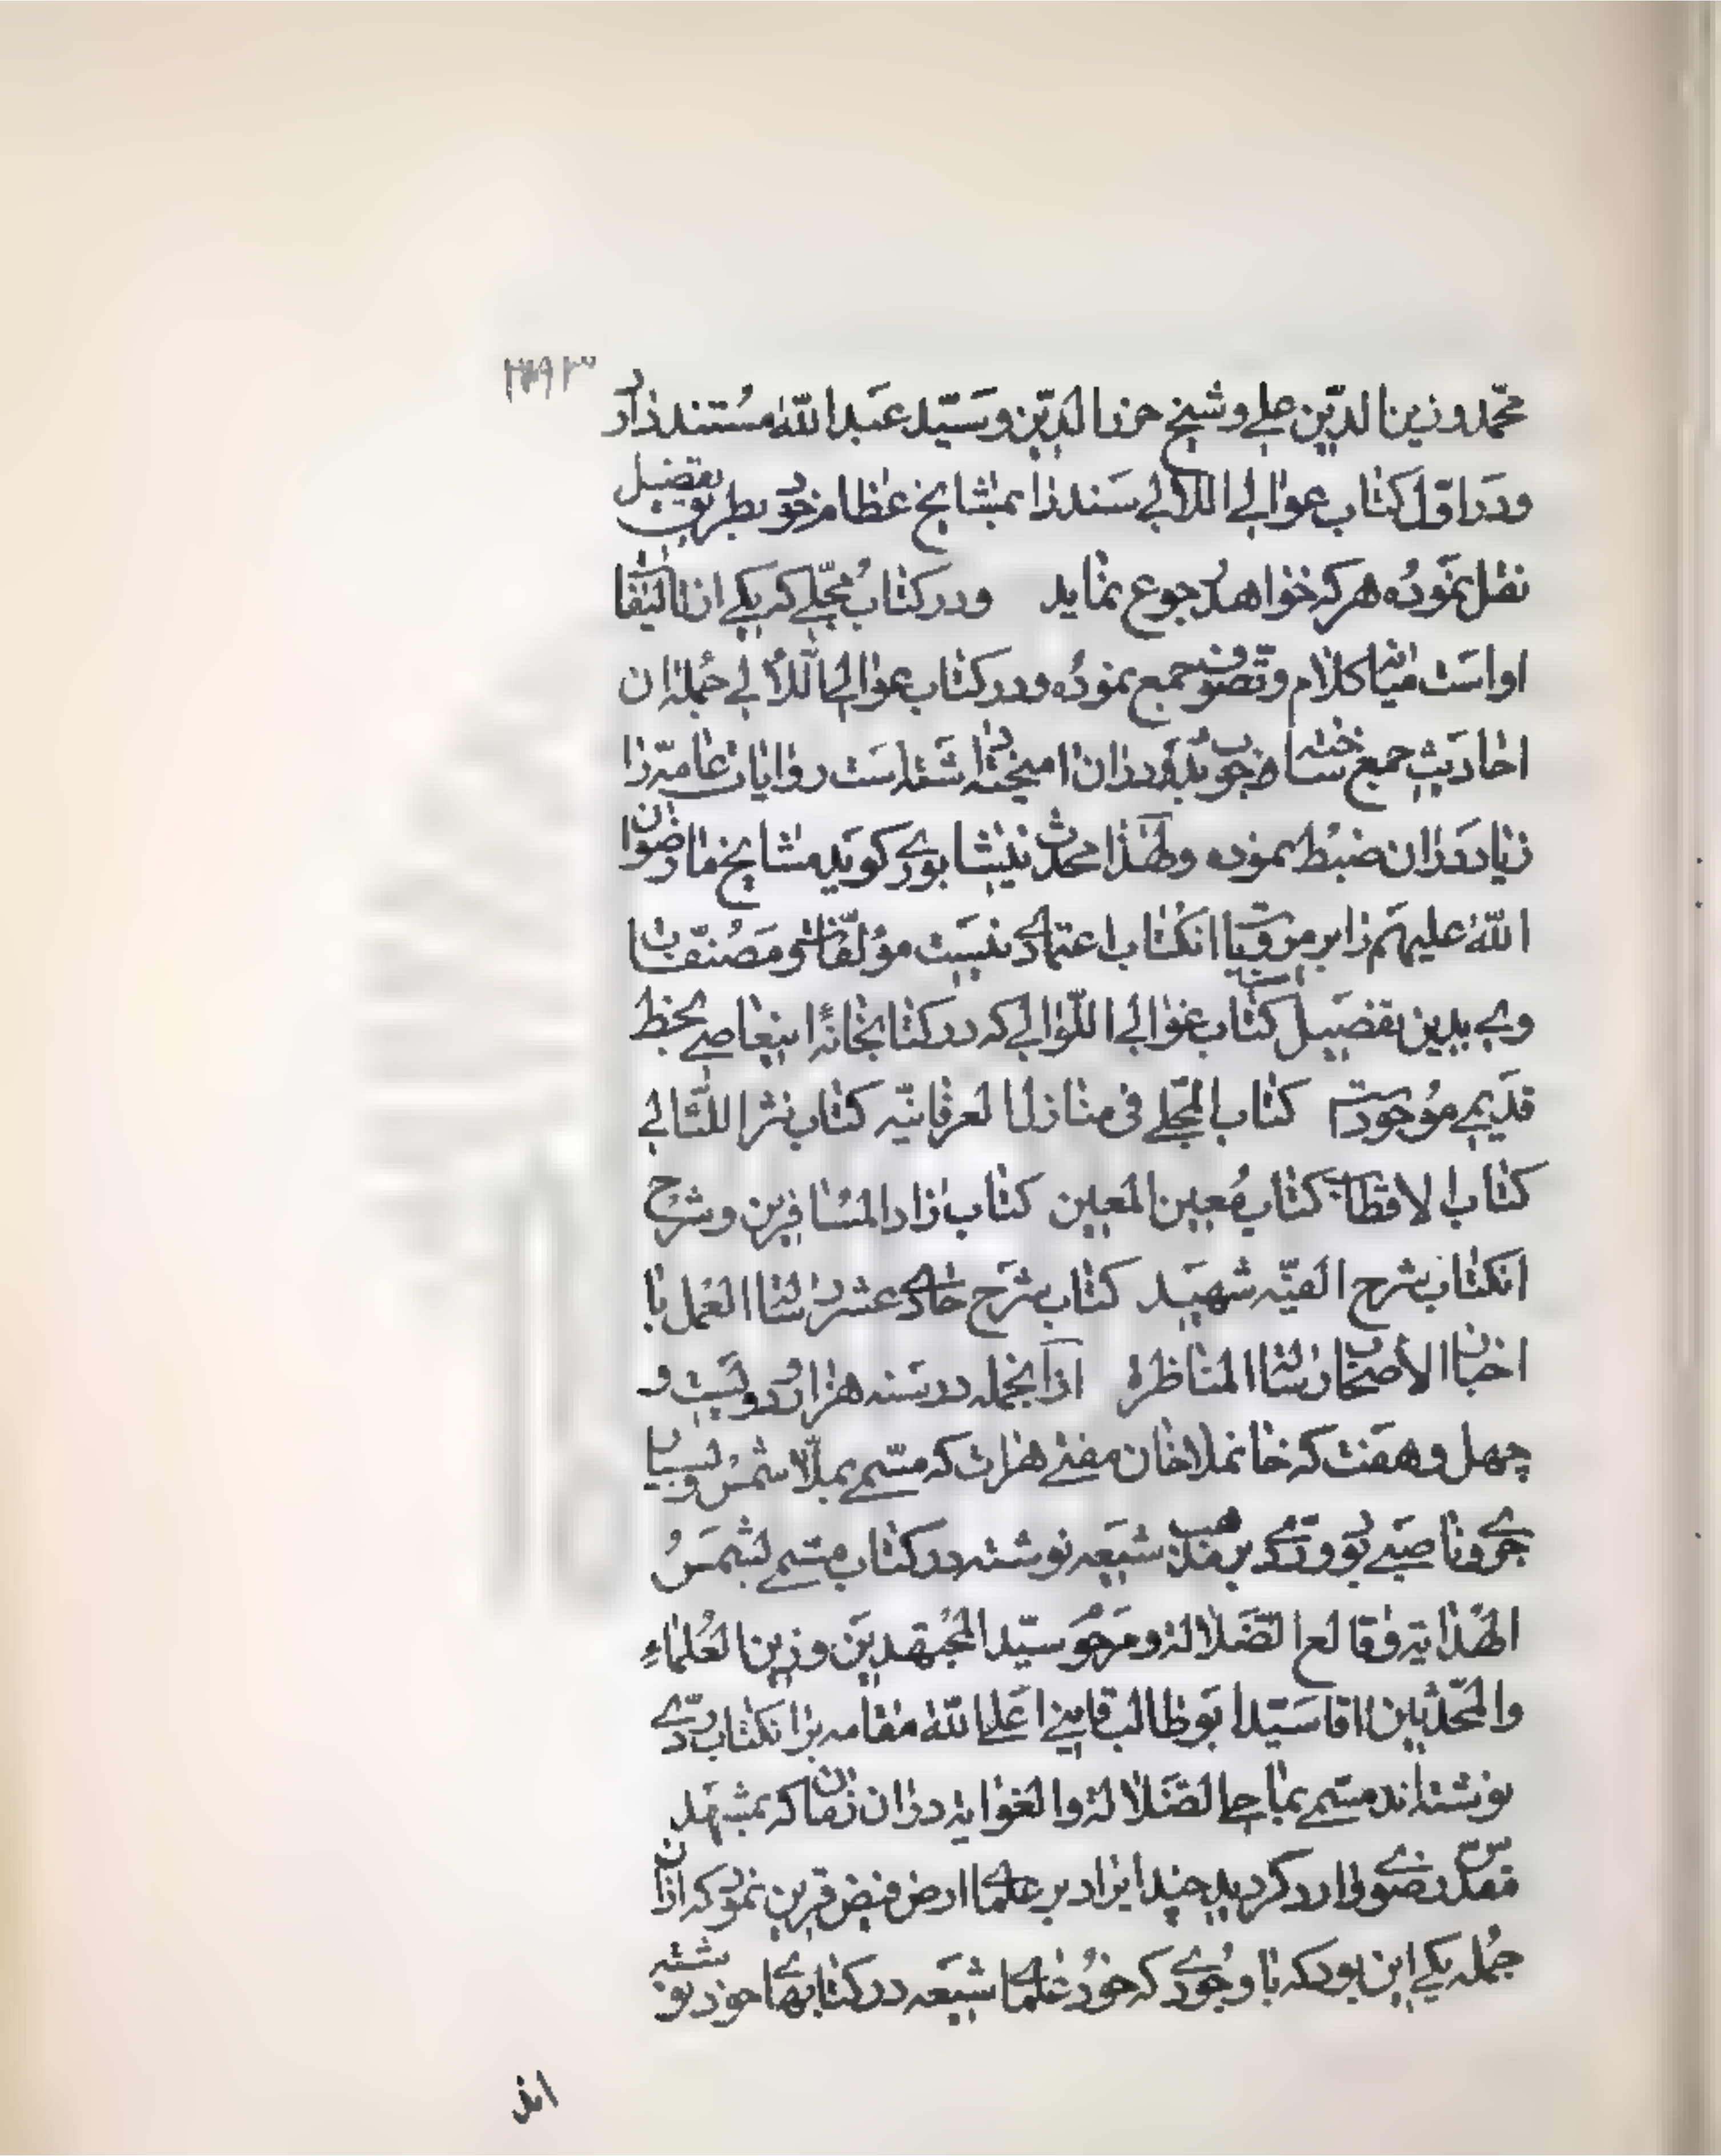 محمد و زین الدین علی و شیخ حرز الدین و سید عبد الله مستند دارد
و در اول کتاب عوالی اللآلی سند را بمشایخ عظام خود بطریق تفصیل
نقل نموده هر که خواهد رجوع نماید و در کتاب مجلی که یکی از تالیفات
او است میانه کلام و تصوف جمع نموده و در کتاب عوالی اللآلی جمله از
احادیث جمع ساخته و در ان امیخته داشته است روایات عامه را
زیاد در ان ضبط نموده و لهذا محدث نیشابوری کوید مشایخ ما رضوان
الله علیهم را بر مرویات انکتاب اعتمادی نیست مؤلفات و مصنفات
وی بدین تفضیل کتاب عوالی اللوالی که در کتابخانهٔ اینعاصی بخط
قدیمی موجود است کتاب المجلی فی منازل العرفانیه کتاب نثر اللئالی
کتاب الاقطاب کتاب معین المعین کتاب زاد المسافرین و شرح
انکتاب شرح الفیه شهید کتاب شرح حادی عشر رساله العمل با
اخبار الاصحاب رساله المناظره از آنجمله در سنه هزار و دویست و
چهل و هفت که خانملا خان مفتی هرات که مسمی بملا شمس و بسیار
جری و ناصبی بود ردی بر مذهب شیعه نوشته در کتاب مسمی بشمس
الهدایة و قالع الضلالة و مرحوم سید المجتهدین و زین العلماء
والمحدثین اقا سید ابو طالب قاینی اعلی الله مقامه بر انکتاب ردی
نوشته اند مسمی بماحی الضلالة و الغوایة در ان زمان که بمشهد
مقدس رضوی وارد کردید چند ایراد بر علمای ارض فیض قرین نمود که از ان
جمله یکی این بود که با وجودی که خود علمای شیعه در کتابهای خود نوشته
اند